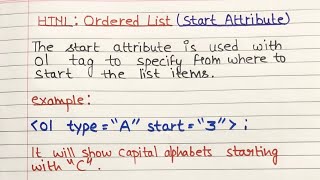 HTML : Ordered List (Start Attribute)
The start attribute is used with
Ol tag to specify from where to
start the list items.
example :
<Ol type = "A" start = "3"> ;
It will show Capital alphabets starting
with "C".